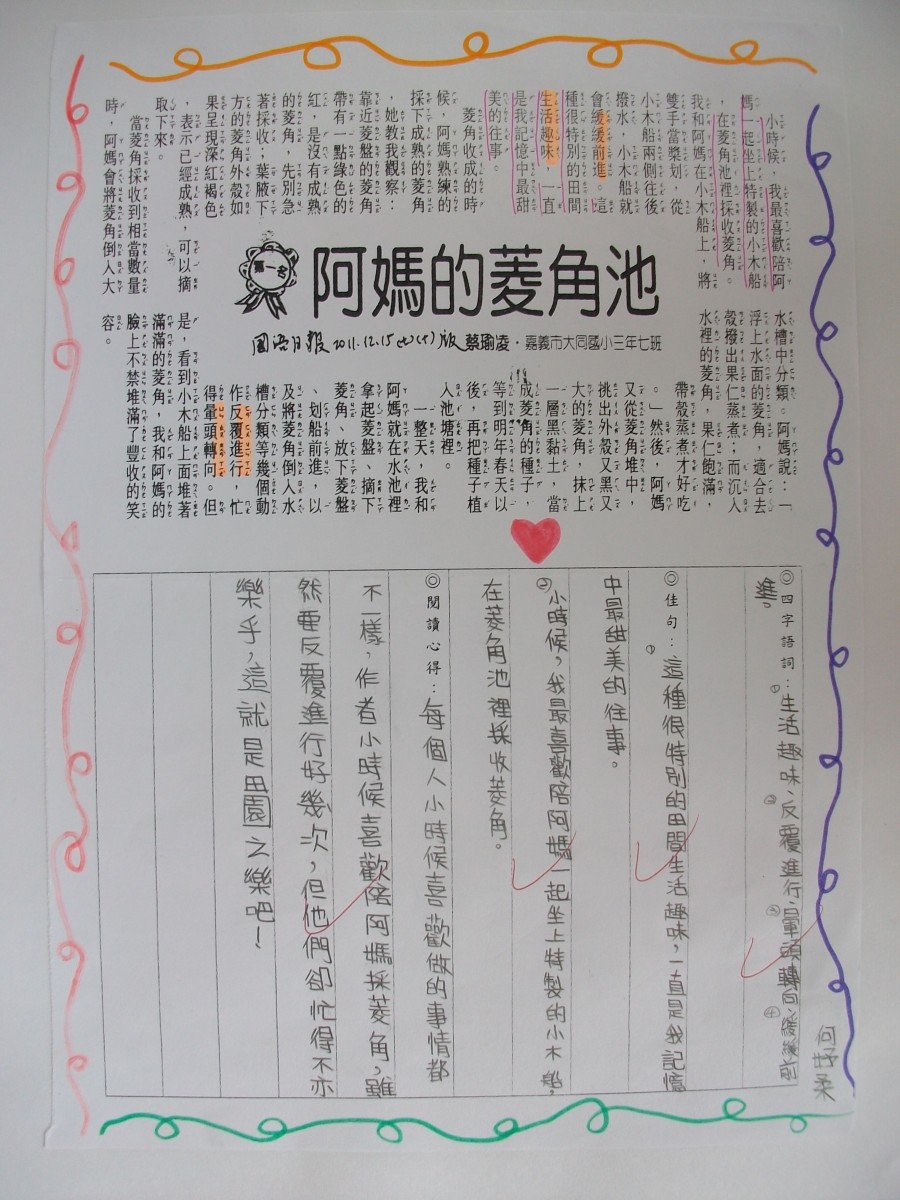 阿媽的菱角池
第一名
國語日報 2011.12.15(七)版 蔡瑜凌・嘉義市大同國小三年七班
小時候，我最喜歡陪阿
媽一起坐上特製的小木船
，在菱角池裡採收菱角。
我和阿媽在小木船上，將
雙手當槳划，從
小木船兩側往後
撥水，小木船就
會緩緩前進。這
種很特別的田間
生活趣味，一直
是我記憶中最甜
美的往事。
菱角收成的時
候，阿媽熟練的
採下成熟的菱角
，她教我觀察：
靠近菱盤的菱角
帶有一點綠色的
紅，是沒有成熟
的菱角，先別急
著採收；葉腋下
方的菱角外殼如
果呈現深紅褐色
，表示已經成熟，可以摘
取下來。
當菱角採收到相當數量
時，阿媽會將菱角倒入大
水槽中分類。阿媽說：「
浮上水面的菱角，適合去
殼撥出果仁蒸煮；而沉入
水裡的菱角，果仁飽滿，
帶殼蒸煮才好吃
。」然後，阿媽
又從菱角堆中，
挑出外殼又黑又
大的菱角，抹上
一層黑黏土，當
成菱角的種子，
等到明年春天以
後，再把種子植
入池塘裡。
一整天，我和
阿媽就在水池裡
拿起菱盤、摘下
菱角、放下菱盤
、划船前進，以
及將菱角倒入水
槽分類等幾個動
作反覆進行，忙
得暈頭轉向。但
是，看到小木船上面堆著
滿滿的菱角，我和阿媽的
臉上不禁堆滿了豐收的笑
容。
何妤柔
◎四字語詞：①生活趣味、②反覆進行、③暈頭轉向、④緩緩前
進。
◎佳句：①這種很特別的田間生活趣味，一直是我記憶
中最甜美的往事。
②小時候，我最喜歡陪阿媽一起坐上特製的小木船，
在菱角池裡採收菱角。
◎閱讀心得：每個人小時候喜歡做的事情都
不一樣，作者小時候喜歡陪阿媽採菱角，雖
然要反覆進行好幾次，但他們卻忙得不亦
樂乎，這就是田園之樂吧！